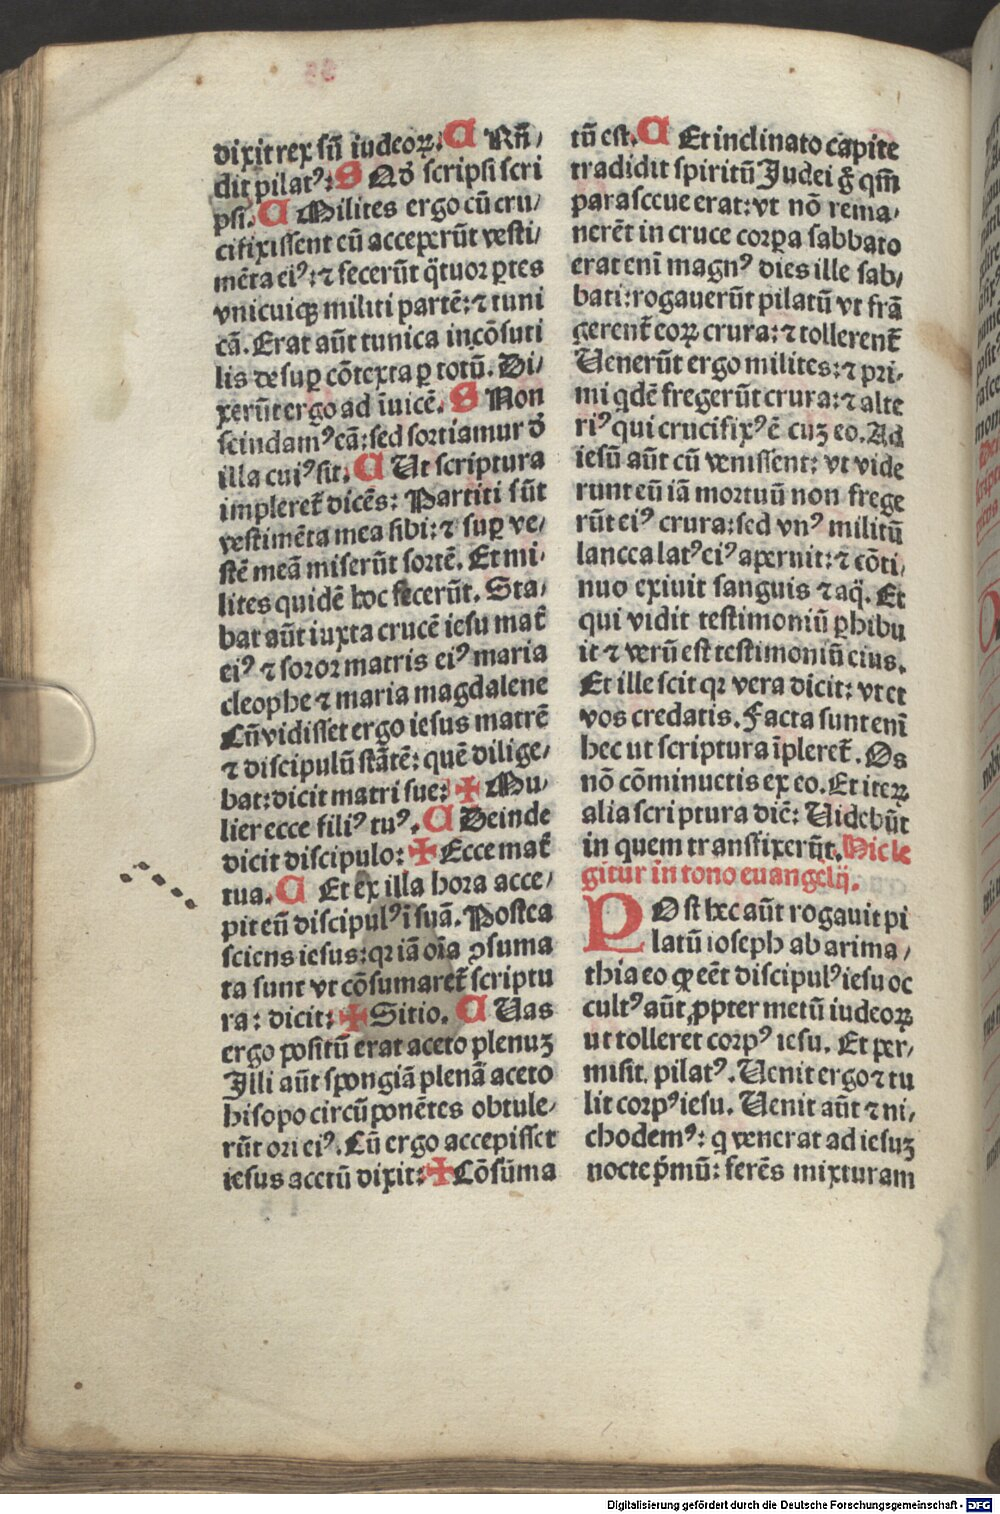 dixit rex sū iudeoꝝ. C Rñ/
dit pilatꝰ: S Qđ scripsi scri
psi. C Milites ergo cū cru/
cifixissent eū acceperūt vesti/
mēta eiꝰ: ⁊ fecerūt q̈tuor ꝑtes
vnicuiqꝫ militi partē: ⁊ tuni
cā. Erat aūt tunica incōsuti
lis desuꝑ cōtexta ꝑ totū. Di/
xerūt ergo ad īuicē. S Non
scindamꝰ eā: sed sortiamur đ
illa cuiꝰ sit. C Ut scriptura
implereť dicēs: Partiti sūt
vestimēta mea sibi: ⁊ suꝑ ve/
stē meā miserūt sortē. Et mi/
lites quidē hoc fecerūt. Sta/
bat aūt iuxta crucē iesu mať
eiꝰ ⁊ soror matris eiꝰ maria
cleophe ⁊ maria magdalene
Cū vidisset ergo iesus matrē
⁊ discipulū stātē: quē dilige/
bat: dicit matri sue: ✠ Mu/
lier ecce filiꝰ tuꝰ. C Deinde
dicit discipulo: ✠ Ecce mať
tua. C Et ex illa hora acce/
pit eū discipulꝰ ī suā. Postea
sciens iesus: qꝛ iā oīa ꝯsuma
ta sunt vt cōsumareť scriptu
ra: dicit: ✠ Sitio. C Uas
ergo positū erat aceto plenuꝫ
Illi aūt spongiā plenā aceto
hisopo circūponētes obtule/
rūt ori eiꝰ. Cū ergo accepisset
iesus acetū dixit: ✠ Cōsūma
tū est. C Et inclinato capite
tradidit spiritū Judei g̃ qm̄
parasceue erat: vt nō rema/
nerēt in cruce corꝑa sabbato
erat enī magnꝰ dies ille sab/
bati: rogauerūt pilatū vt frā
gerenť eoꝝ crura: ⁊ tollerenť
Uenerūt ergo milites: ⁊ pri/
mi qdē fregerūt crura: ⁊ alte
riꝰ qui crucifixꝰ ē cuꝫ eo. Ad
iesū aūt cū venissent: vt vide
runt eū iā mortuū non frege
rūt eiꝰ crura: sed vnꝰ militū
lancea latꝰ eiꝰ aperuit: ⁊ cōti/
nuo exiuit sanguis ⁊ aq̈. Et
qui vidit testimoniū ꝑhibu
it ⁊ verū est testimoniū eius.
Et ille scit qꝛ vera dicit: vt et
vos credatis. Facta sunt enī
hec ut scriptura īplereť. Os
nō cōminuetis ex eo. Et iteꝝ
alia scriptura dic̄: Uidebūt
in quem transfixerūt. Hic le
gitur in tono euangelij.
POst hec aūt rogauit pi
latū ioseph ab arima/
thia eo ꝙ eēt discipulꝰ iesu oc
cultꝰ aūt ꝓpter metū iudeoꝝ
ut tolleret corpꝰ iesu. Et per/
misit pilatꝰ. Uenit ergo ⁊ tu
lit corpꝰ iesu. Uenit aūt ⁊ ni/
chodemꝰ: q venerat ad iesuꝫ
nocte p̄mū: ferēs mixturam
Digitalisierung gefördert durch die Deutsche Forschungsgemeinschaft - DFG